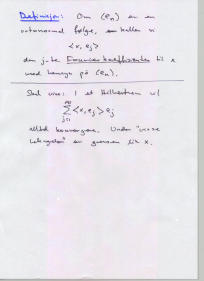 Definisjon: Om (en) er en
ortonormal følge, så kaller vi
<x, ej>
den j-te Fourierkoeffisienten til x
med hensyn på (en).
Skal vise: I et Hilbertrom vil
∞
Σ <x, ej> ej
j=1
alltid konvergere. Under "visse
betingelser" er grensen lik x.